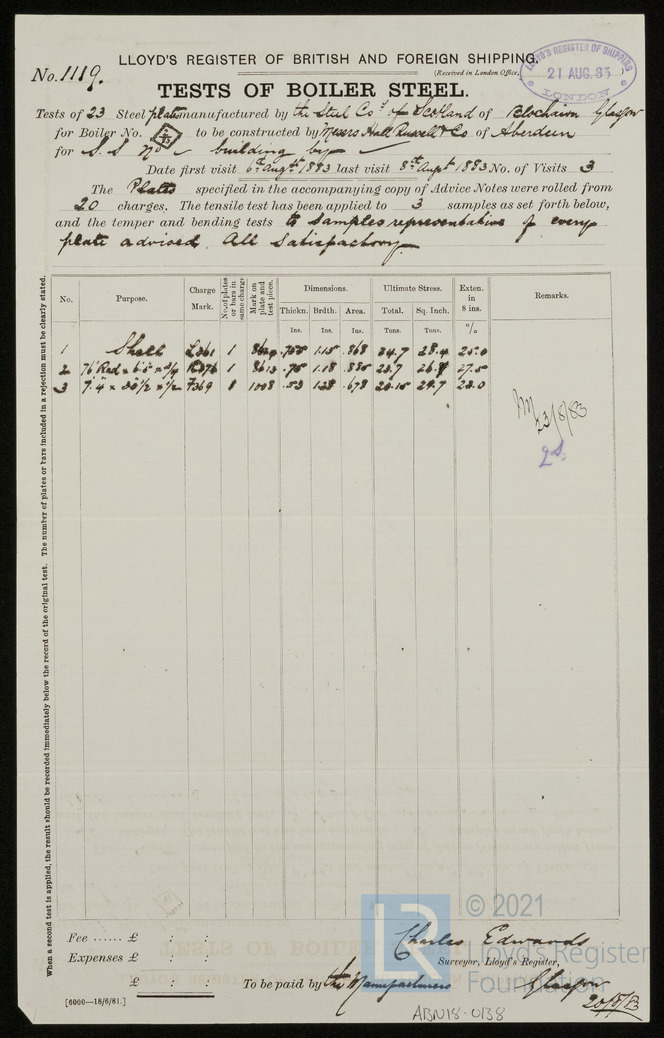 No. 1119.
LLOYD'S REGISTER OF BRITISH AND FOREIGN SHIPPING.
(Received in London Office,
LLOYD'S REGISTER OF SHIPPING
21 AUG. 83
LONDON
TESTS OF BOILER STEEL.
Tests of 23 Steel plates manufactured by the Steel Coy of Scotland of Blochairn Glasgow
for Boiler No. to be constructed by Messrs Hall Russell & Co of Aberdeen
for S.S. No ✓ building by ✓
Date first visit 6th Augt 1883 last visit 8th Augt 1883 No. of Visits 3
The Plates specified in the accompanying copy of Advice Notes were rolled from
20 charges. The tensile test has been applied to 3 samples as set forth below,
and the temper and bending tests to samples representative of every
plate advised. All Satisfactory.
When a second test is applied, the result should be recorded immediately below the record of the original test. The number of plates or bars included in a rejection must be clearly stated.
No. Purpose. Charge Mark. No. of plates or bars in same charge Mark on plate and test piece. Dimensions. Ultimate Stress. Exten. in 8 ins. Remarks.
Thickn. Brdth. Area. Total. Sq. Inch.
Ins. Ins. Ins. Tons. Tons. %
1 Shell 1 .755 1.15 .868 24.7 28.4 25.0
2 1 .75 1.18 .885 23.7 26.8 27.5
3 7369 1 1008 .53 1.28 .678 20.15 29.7 23.0
23/8/83
Fee ...... £ : :
Expenses £ : :
£ : :
Charles Edwards
Surveyor, Lloyd's Register,
To be paid by the Manufacturers Glasgow
20/8/83
[6000—18/6/81.]
ABN18-0138
LR © 2021
Lloyd's Register
Foundation